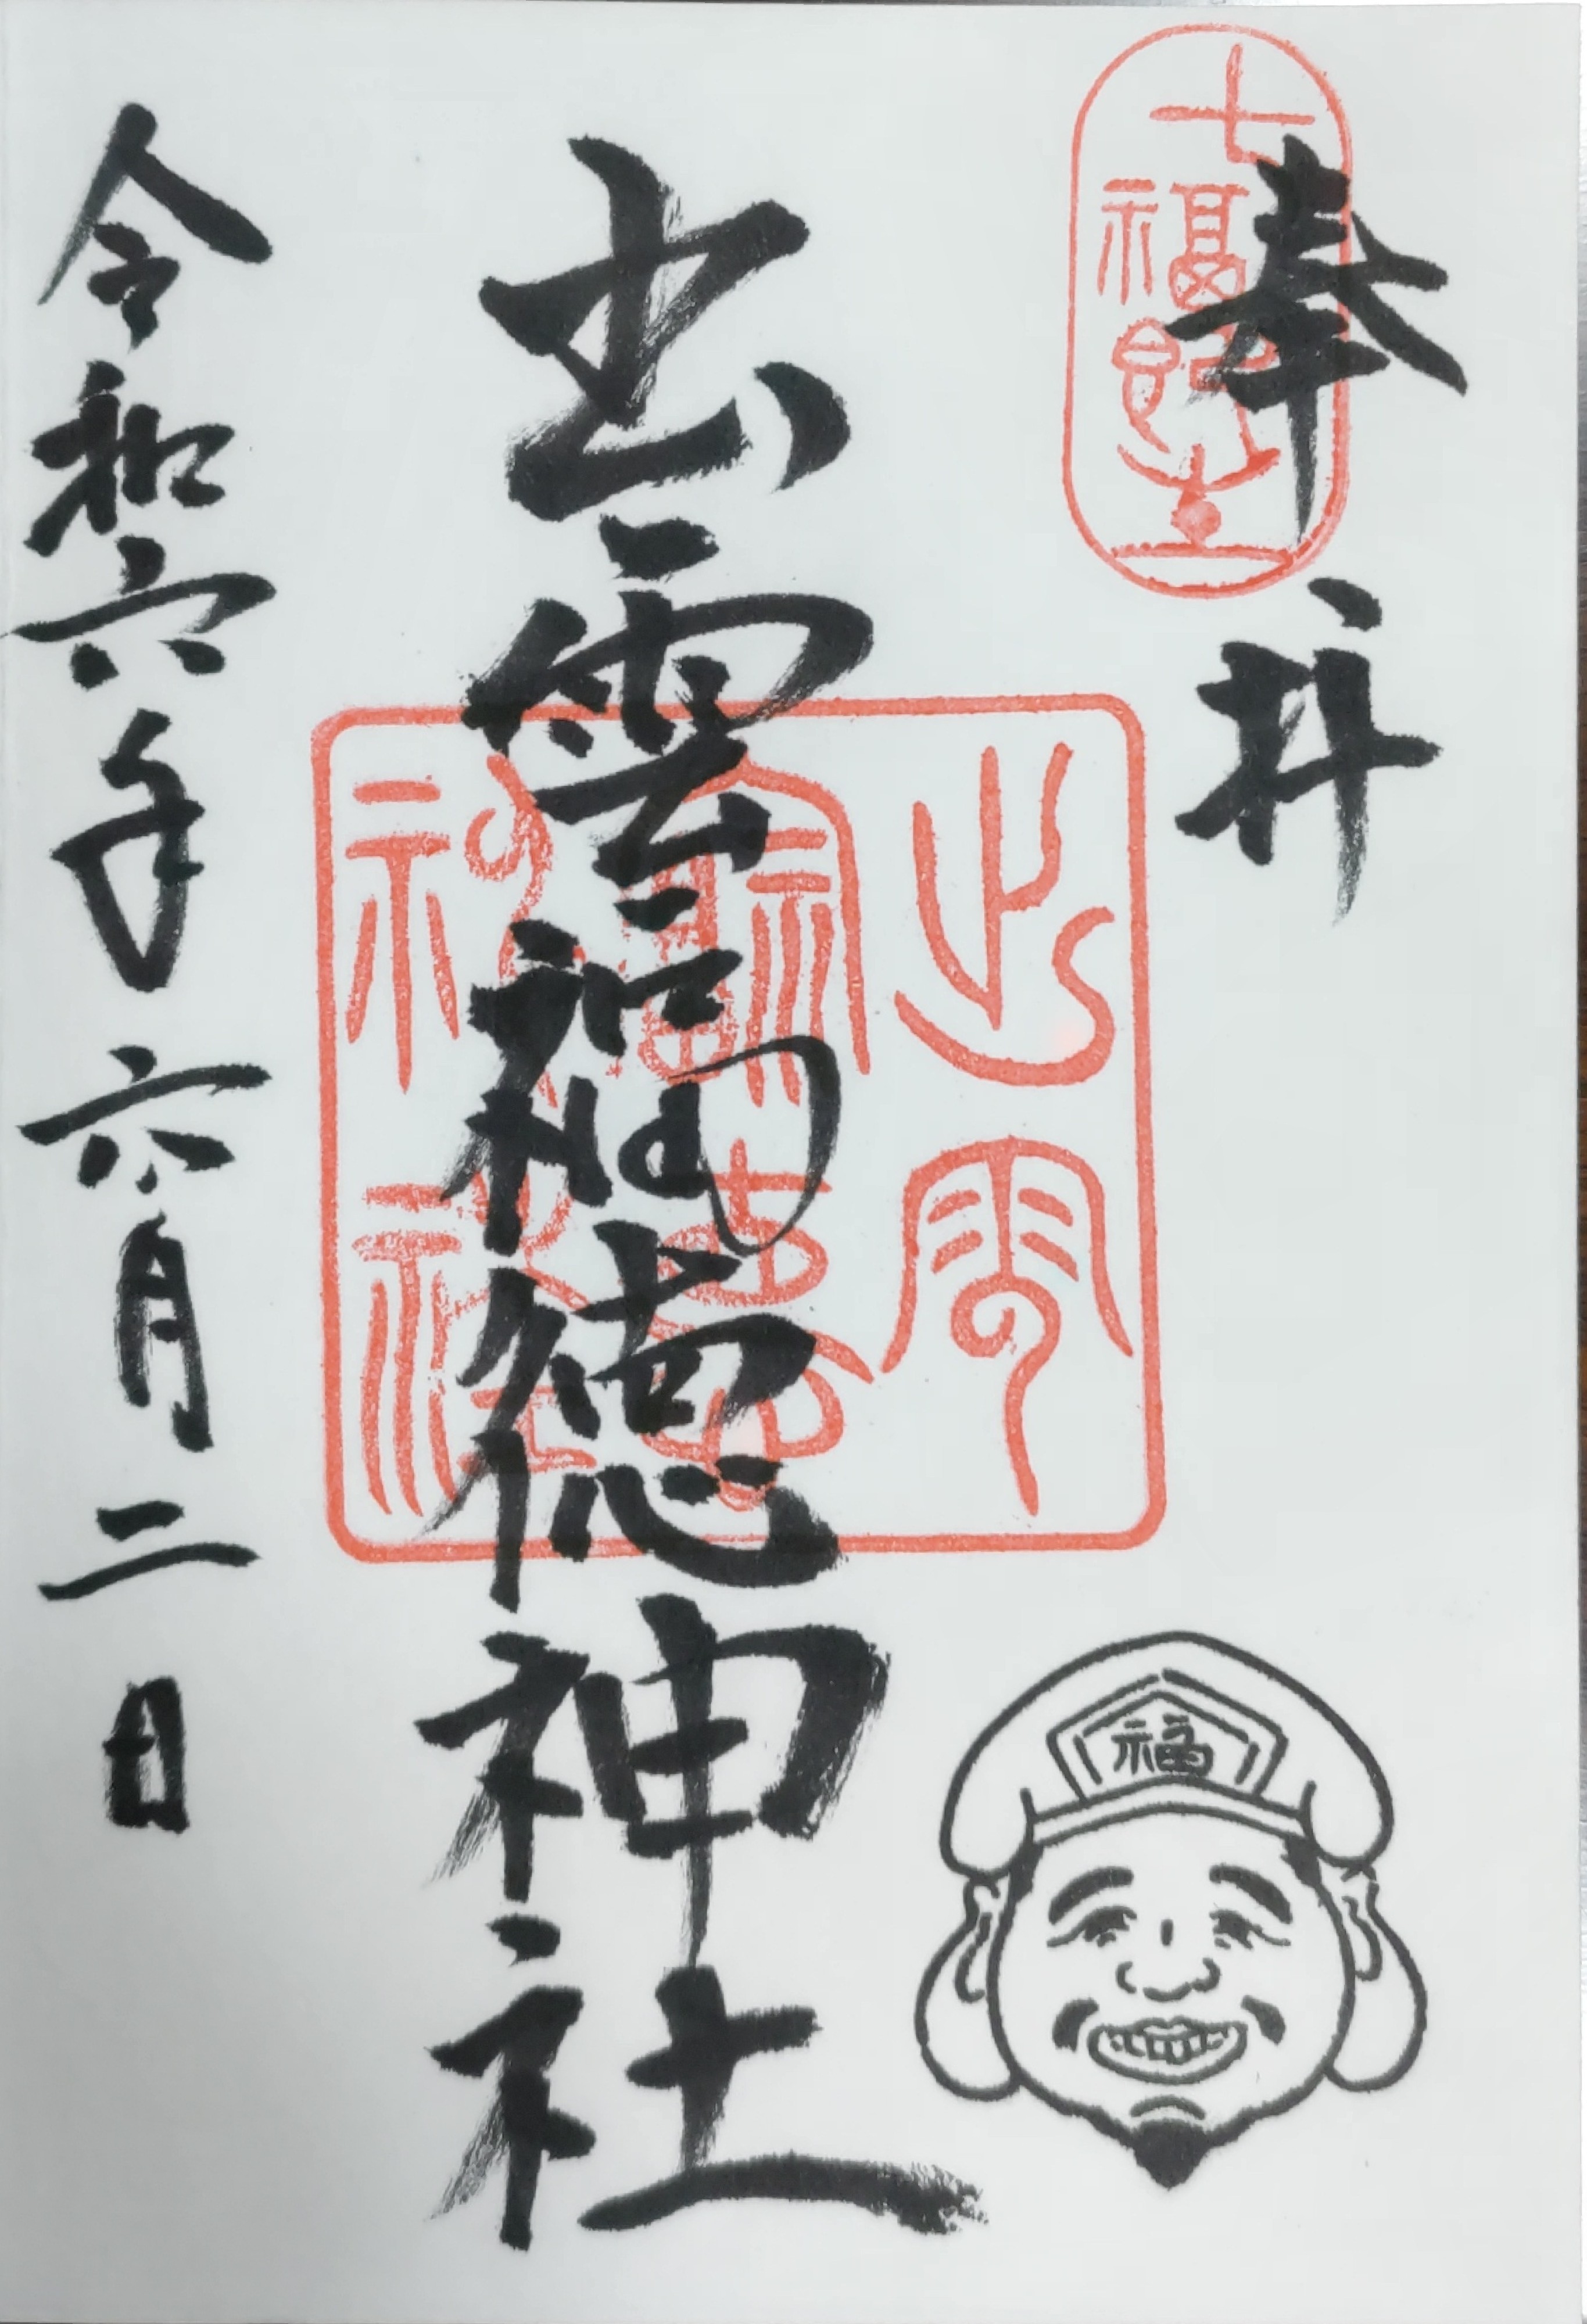 七福即生
奉拝
出雲福徳神社
出雲
福徳
神社
令和六年六月二日
福